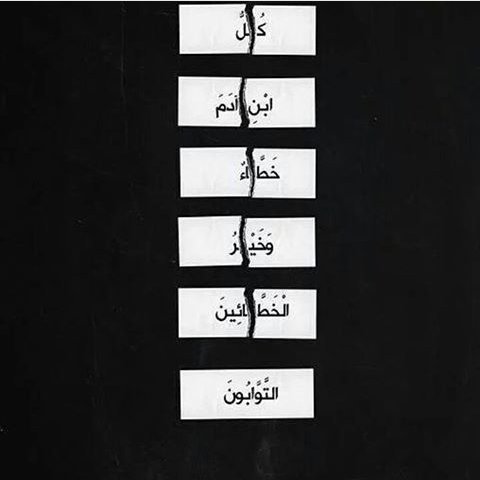 كُلُّ
ابْنِ آدَمَ
خَطَّاءٌ
وَخَيْرُ
الْخَطَّائِينَ
التَّوَّابُونَ